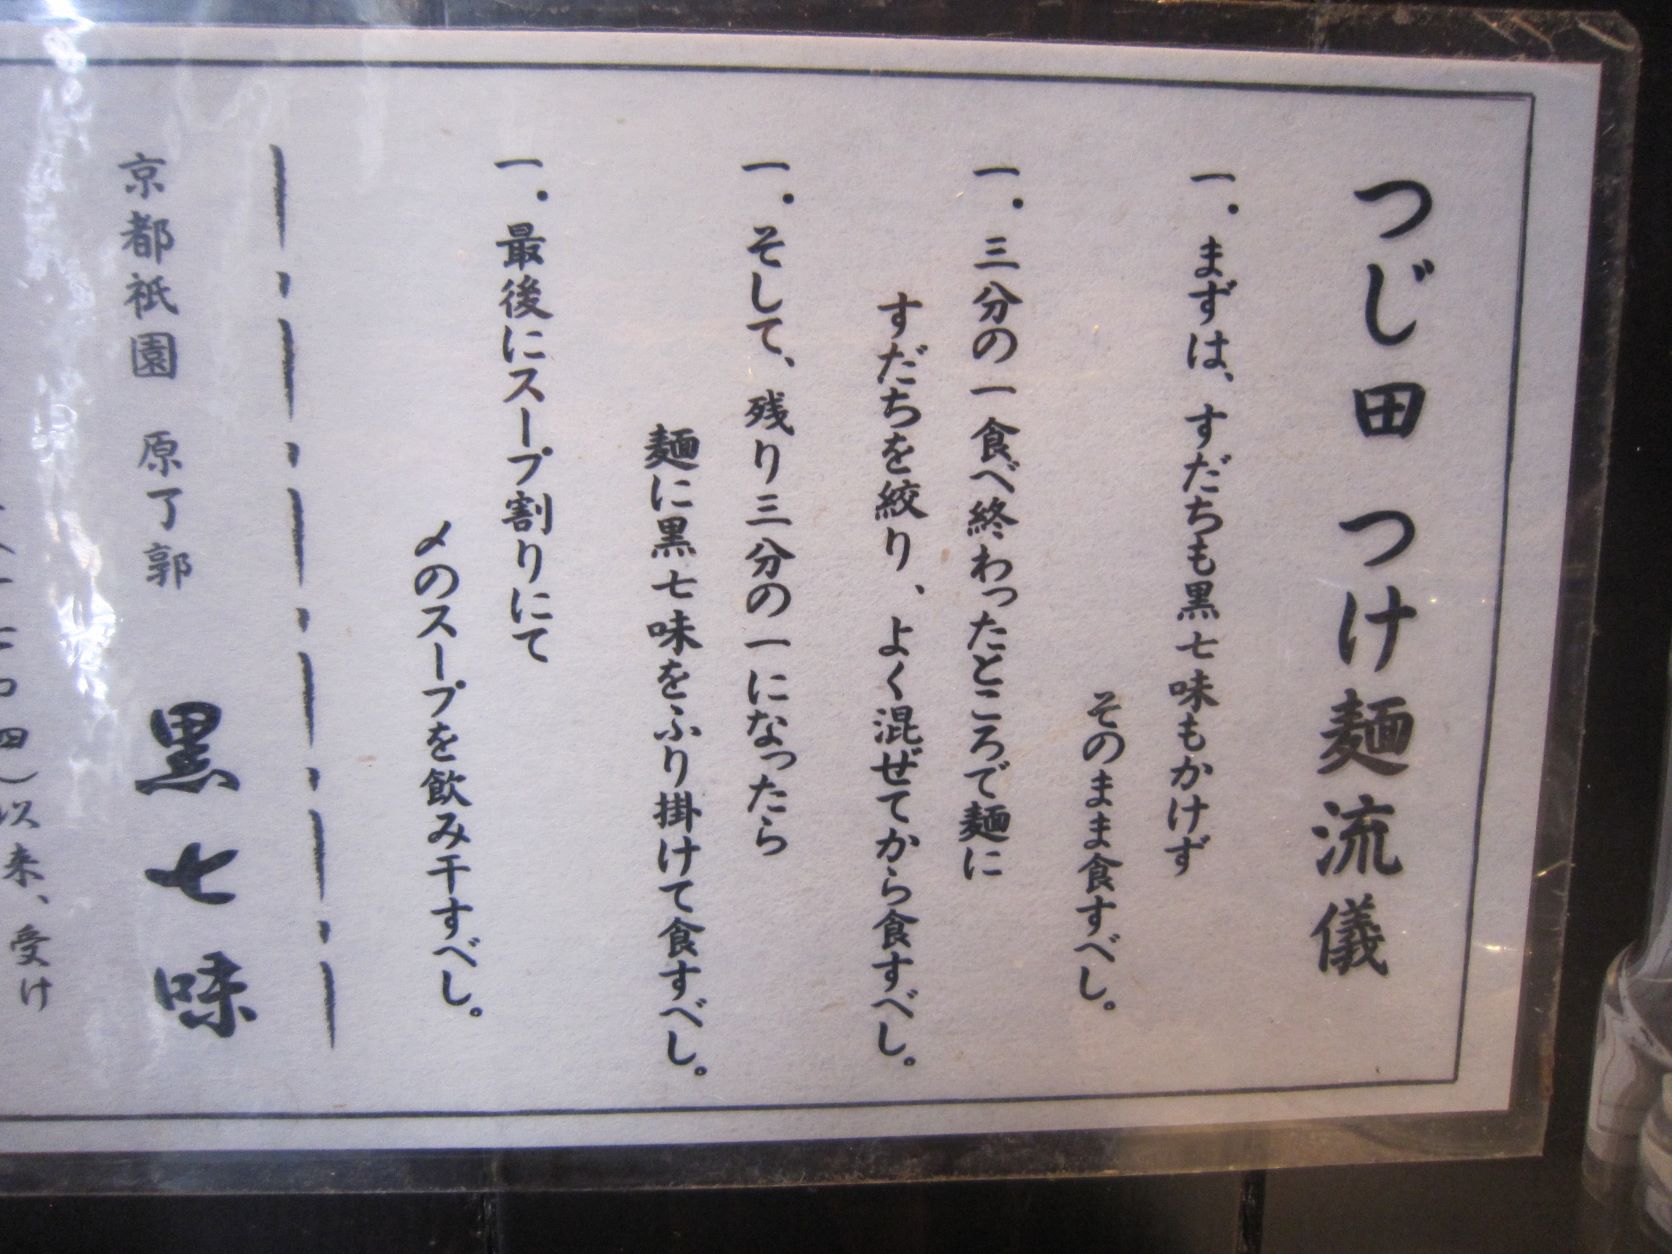 つじ田 つけ麺流儀
一．まずは、すだちも黒七味もかけず
そのまま食すべし。
一．三分の一食べ終わったところで麺に
すだちを絞り、よく混ぜてから食すべし。
一．そして、残り三分の一になったら
麺に黒七味をふり掛けて食すべし。
一．最後にスープ割りにて
〆のスープを飲み干すべし。
京都祇園 原了郭 黒七味
四）以来、受け